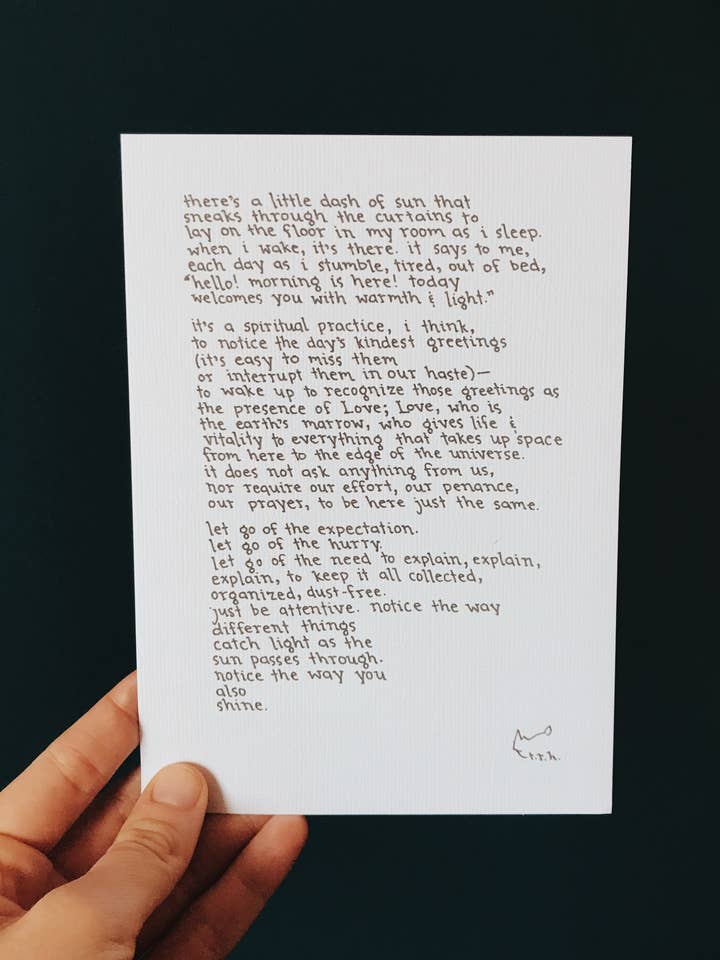 there's a little dash of sun that
sneaks through the curtains to
lay on the floor in my room as i sleep.
when i wake, it's there. it says to me,
each day as i stumble, tired, out of bed,
"hello! morning is here! today
welcomes you with warmth & light."
it's a spiritual practice, i think,
to notice the day's kindest greetings
(it's easy to miss them
or interrupt them in our haste)—
to wake up to recognize those greetings as
the presence of Love; Love, who is
the earth's marrow, who gives life &
vitality to everything that takes up space
from here to the edge of the universe.
it does not ask anything from us,
nor require our effort, our penance,
our prayer, to be here just the same.
let go of the expectation.
let go of the hurry.
let go of the need to explain, explain,
explain, to keep it all collected,
organized, dust-free.
just be attentive. notice the way
different things
catch light as the
sun passes through.
notice the way you
also
shine.
r.r.h.